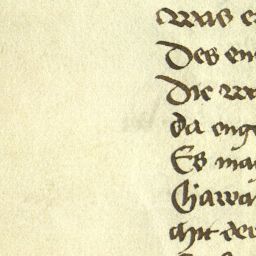 was e
Des en
Die w
da eng
Es ma
Chawa
mit der